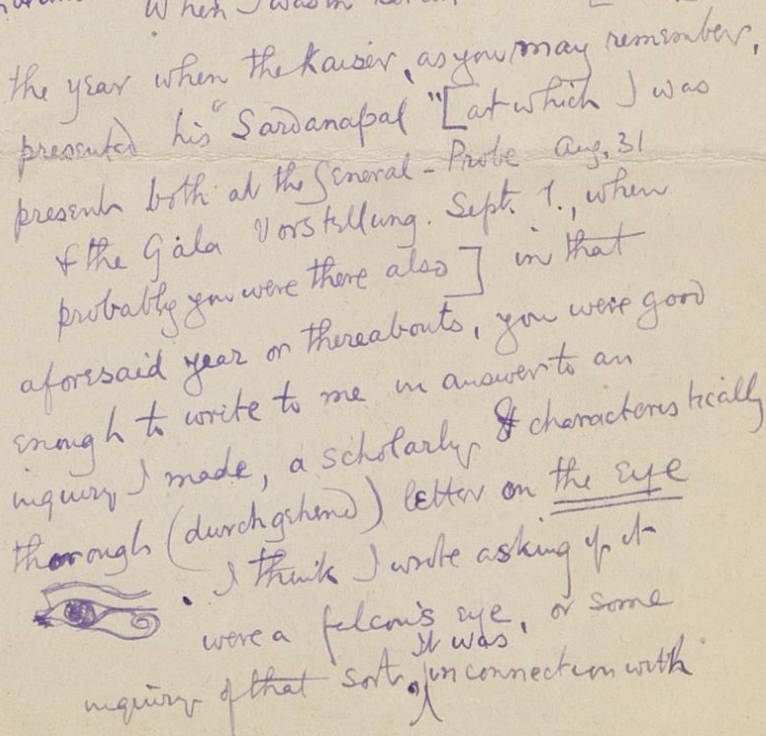 When I was in
the year when the Kaiser, as you may remember,
presented his "Sardanapal" [at which I was
present both at the General-Probe Aug. 31
& the Gala Vorstellung. Sept. 1., when
probably you were there also] in that
aforesaid year or thereabouts, you were good
enough to write to me in answer to an
inquiry I made, a scholarly & characteristically
thorough (durchgehend) letter on the eye
. I think I wrote asking if it
were a falcon's eye, or some
It was,
inquiry of that sort. in connection with